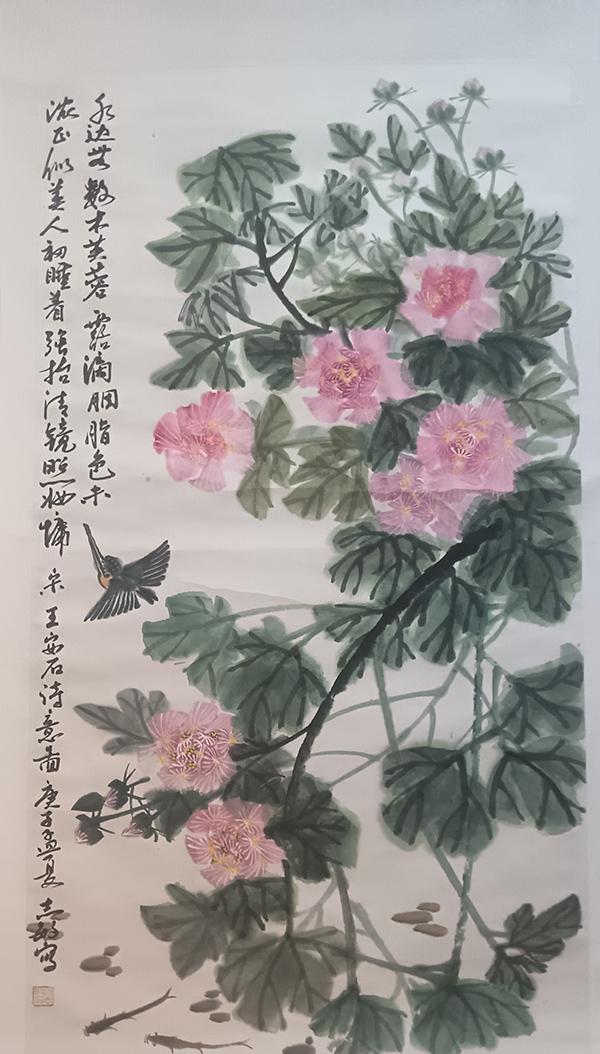 水边无数木芙蓉露滴胭脂色未
浓正似美人初睡着强抬清镜照妆慵 宋王安石诗意图庚子孟夏志敏写